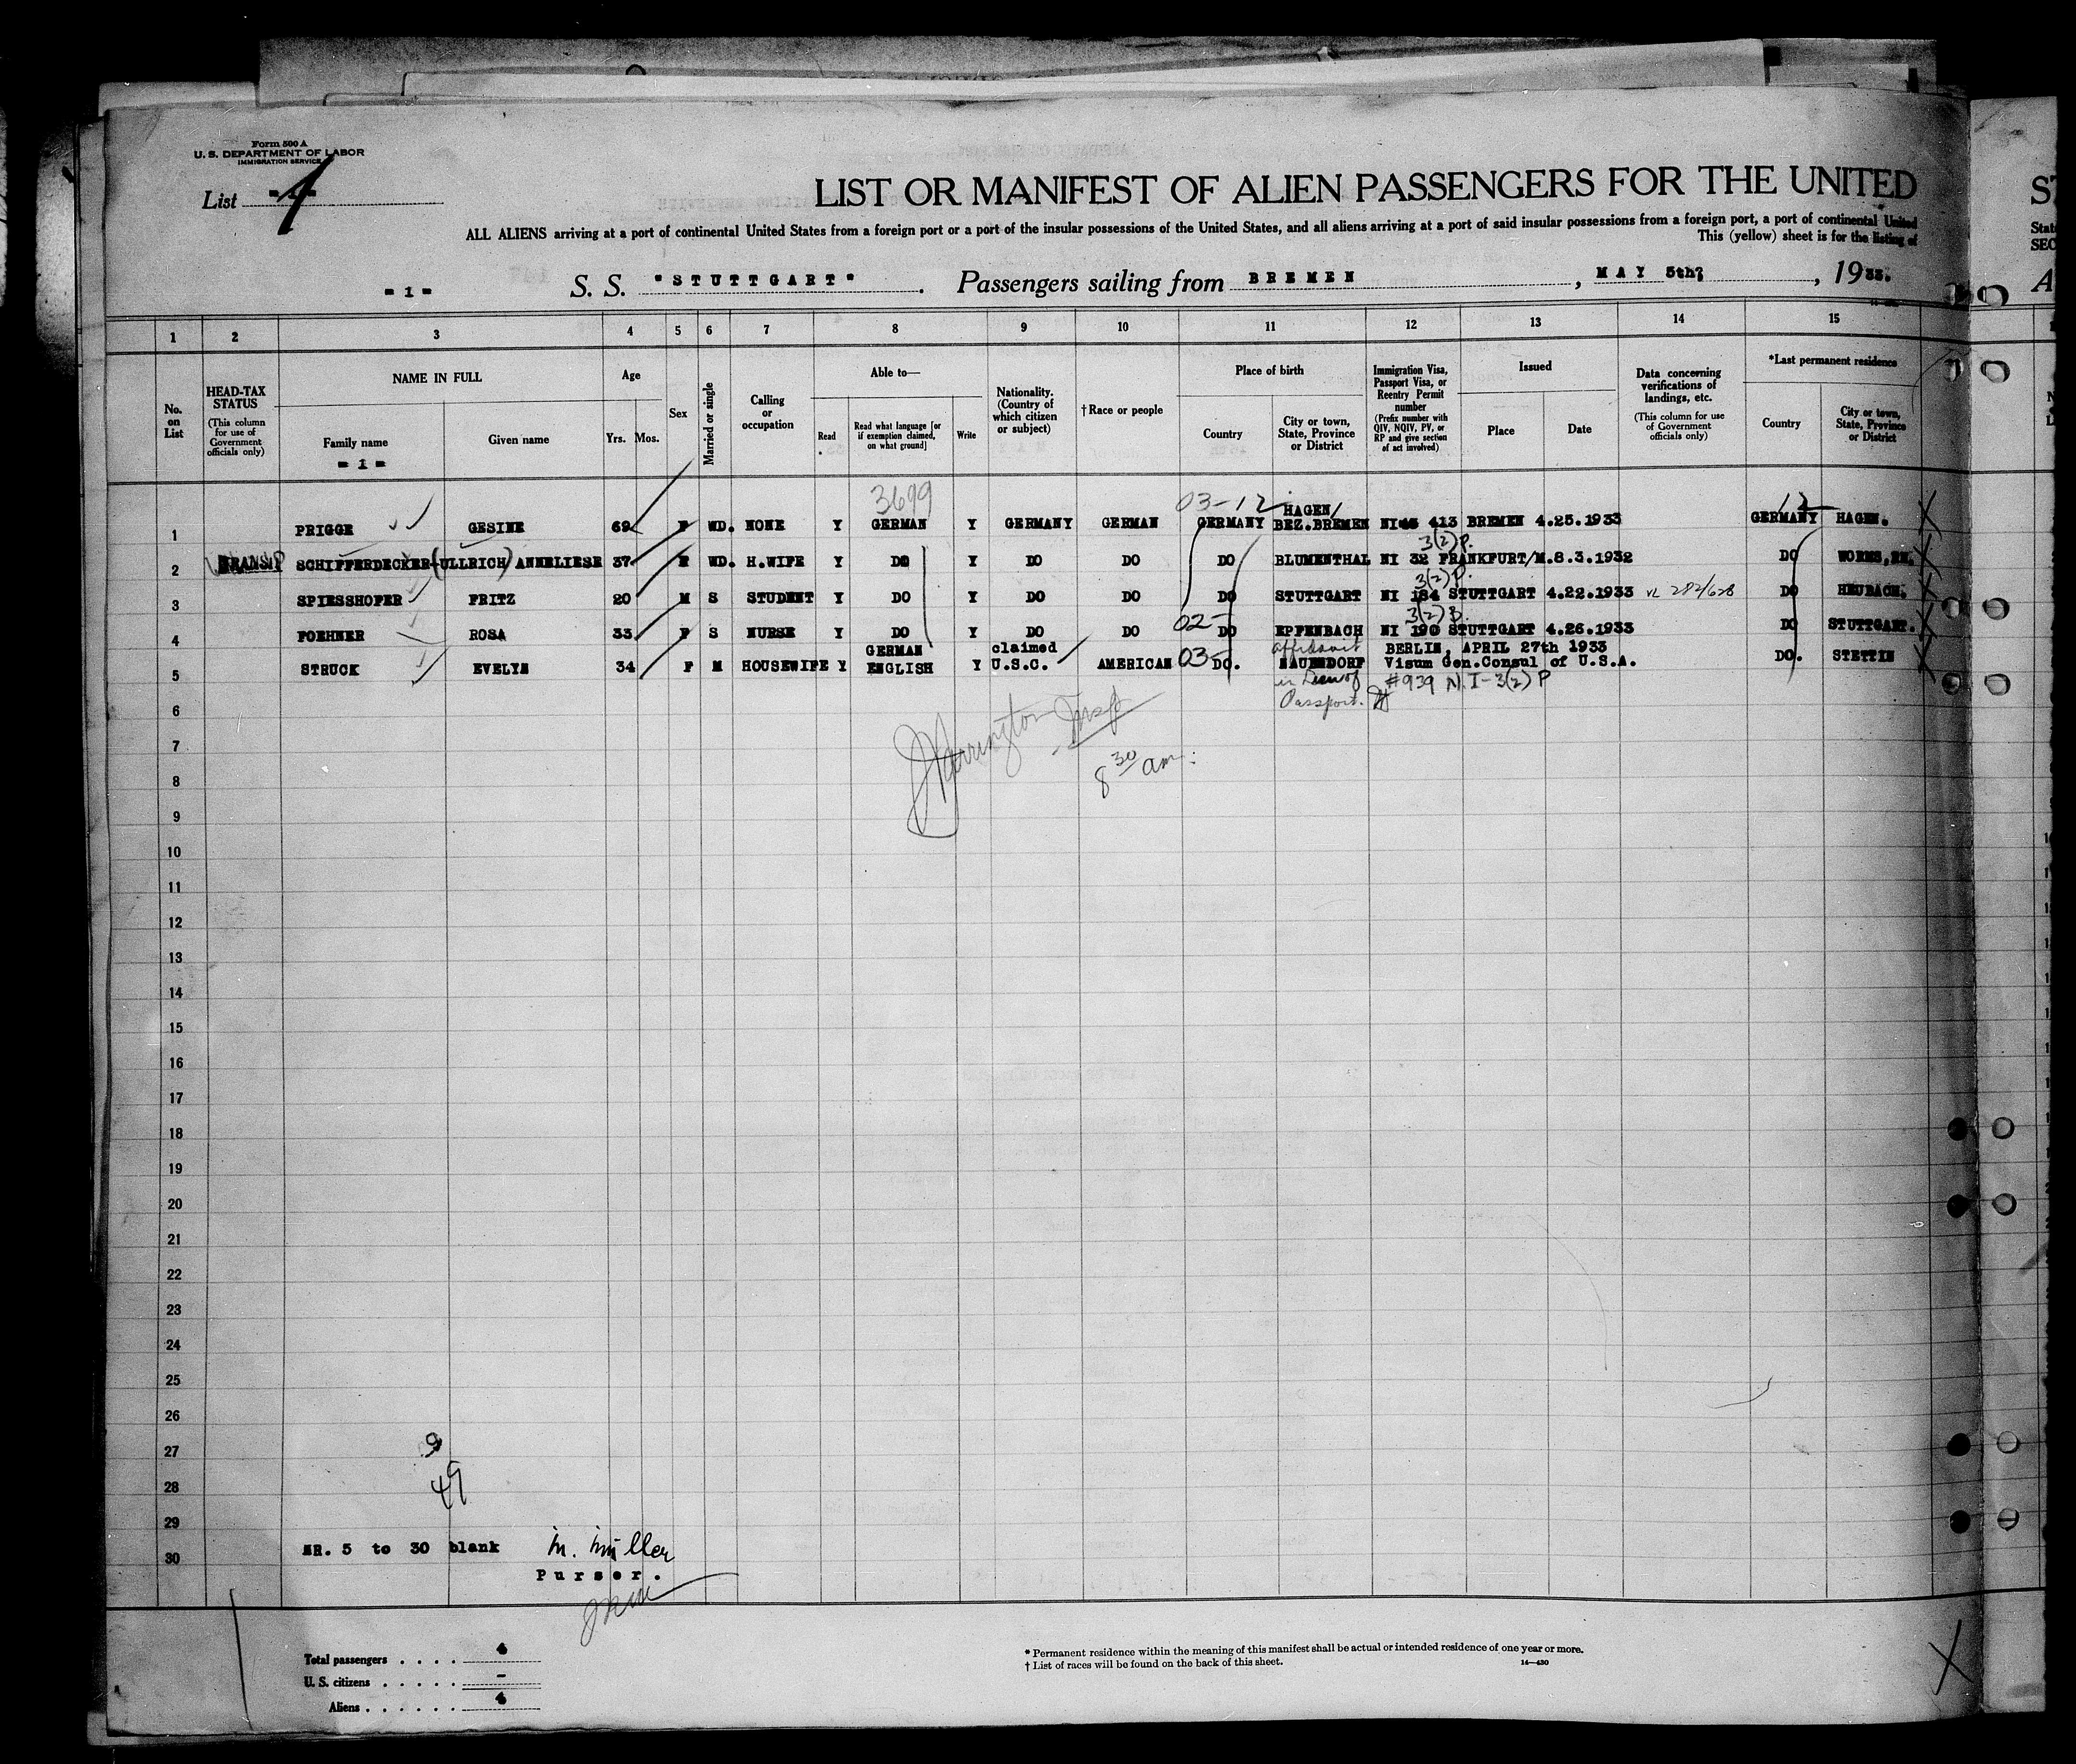 Form 500 A
U. S. DEPARTMENT OF LABOR
IMMIGRATION SERVICE
List 1
LIST OR MANIFEST OF ALIEN PASSENGERS FOR THE UNITED
ALL ALIENS arriving at a port of continental United States from a foreign port or a port of the insular possessions of the United States, and all aliens arriving at a port of said insular possessions from a foreign port, a port of continental United
This (yellow) sheet is for the listing of
- 1 - S. S. "STUTTGART". Passengers sailing from BREMEN, MAY 5th, 1933.
1 2 3 4 5 6 7 8 9 10 11 12 13 14 15
No. on List
HEAD-TAX STATUS (This column for use of Government officials only)
NAME IN FULL
Family name
- 1 -
Given name
Age
Yrs. Mos.
Sex
Married or single
Calling or occupation
Able to—
Read
Read what language [or if exemption claimed, on what ground]
Write
Nationality. (Country of which citizen or subject)
† Race or people
Place of birth
Country
City or town, State, Province or District
Immigration Visa, Passport Visa, or Reentry Permit number (Prefix number with QIV, NQIV, PV, or RP and give section of act involved)
Issued
Place
Date
Data concerning verifications of landings, etc. (This column for use of Government officials only)
*Last permanent residence
Country
City or town, State, Province or District
3699 03-12 HAGEN/ 12
1 PRIGGE GESINE 69 F WD. NONE Y GERMAN Y GERMANY GERMAN GERMANY BEZ.BREMEN NI 413 BREMEN 4.25.1933 GERMANY HAGEN.
3(2)P.
2 TRANSIT SCHIFFERDECKER-(ULLRICH) ANNELIESE 37 F WD. H.WIFE Y DO Y DO DO DO BLUMENTHAL NI 32 FRANKFURT/M.8.3.1932 DO WORMS,RH.
3(2)P.
3 SPIESSHOFER FRITZ 20 M S STUDENT Y DO Y DO DO DO STUTTGART NI 184 STUTTGART 4.22.1933 VL 282/628 DO HEUBACH.
02- 3(2)B.
4 FOEHNER ROSA 33 F S NURSE Y DO Y DO DO DO EPFENBACH NI 190 STUTTGART 4.26.1933 DO STUTTGART.
GERMAN claimed affidavit BERLIN, APRIL 27th 1933
5 STRUCK EVELYN 34 F M HOUSEWIFE Y ENGLISH Y U.S.C. AMERICAN 03- DO. NAUENDORF Visum Gen.Consul of U.S.A. DO. STETTIN
in lieu of #939 N.I-3(2)P
Passport.
6
7
Harrington Insp
8 8 30 am.
9
10
11
12
13
14
15
16
17
18
19
20
21
22
23
24
25
26
27 9
28 49
29
30 NR. 5 to 30 blank M. Müller
Purser.
Total passengers . . . . 4
U. S. citizens . . . . . -
Aliens . . . . . . 4
* Permanent residence within the meaning of this manifest shall be actual or intended residence of one year or more.
† List of races will be found on the back of this sheet. 14—430